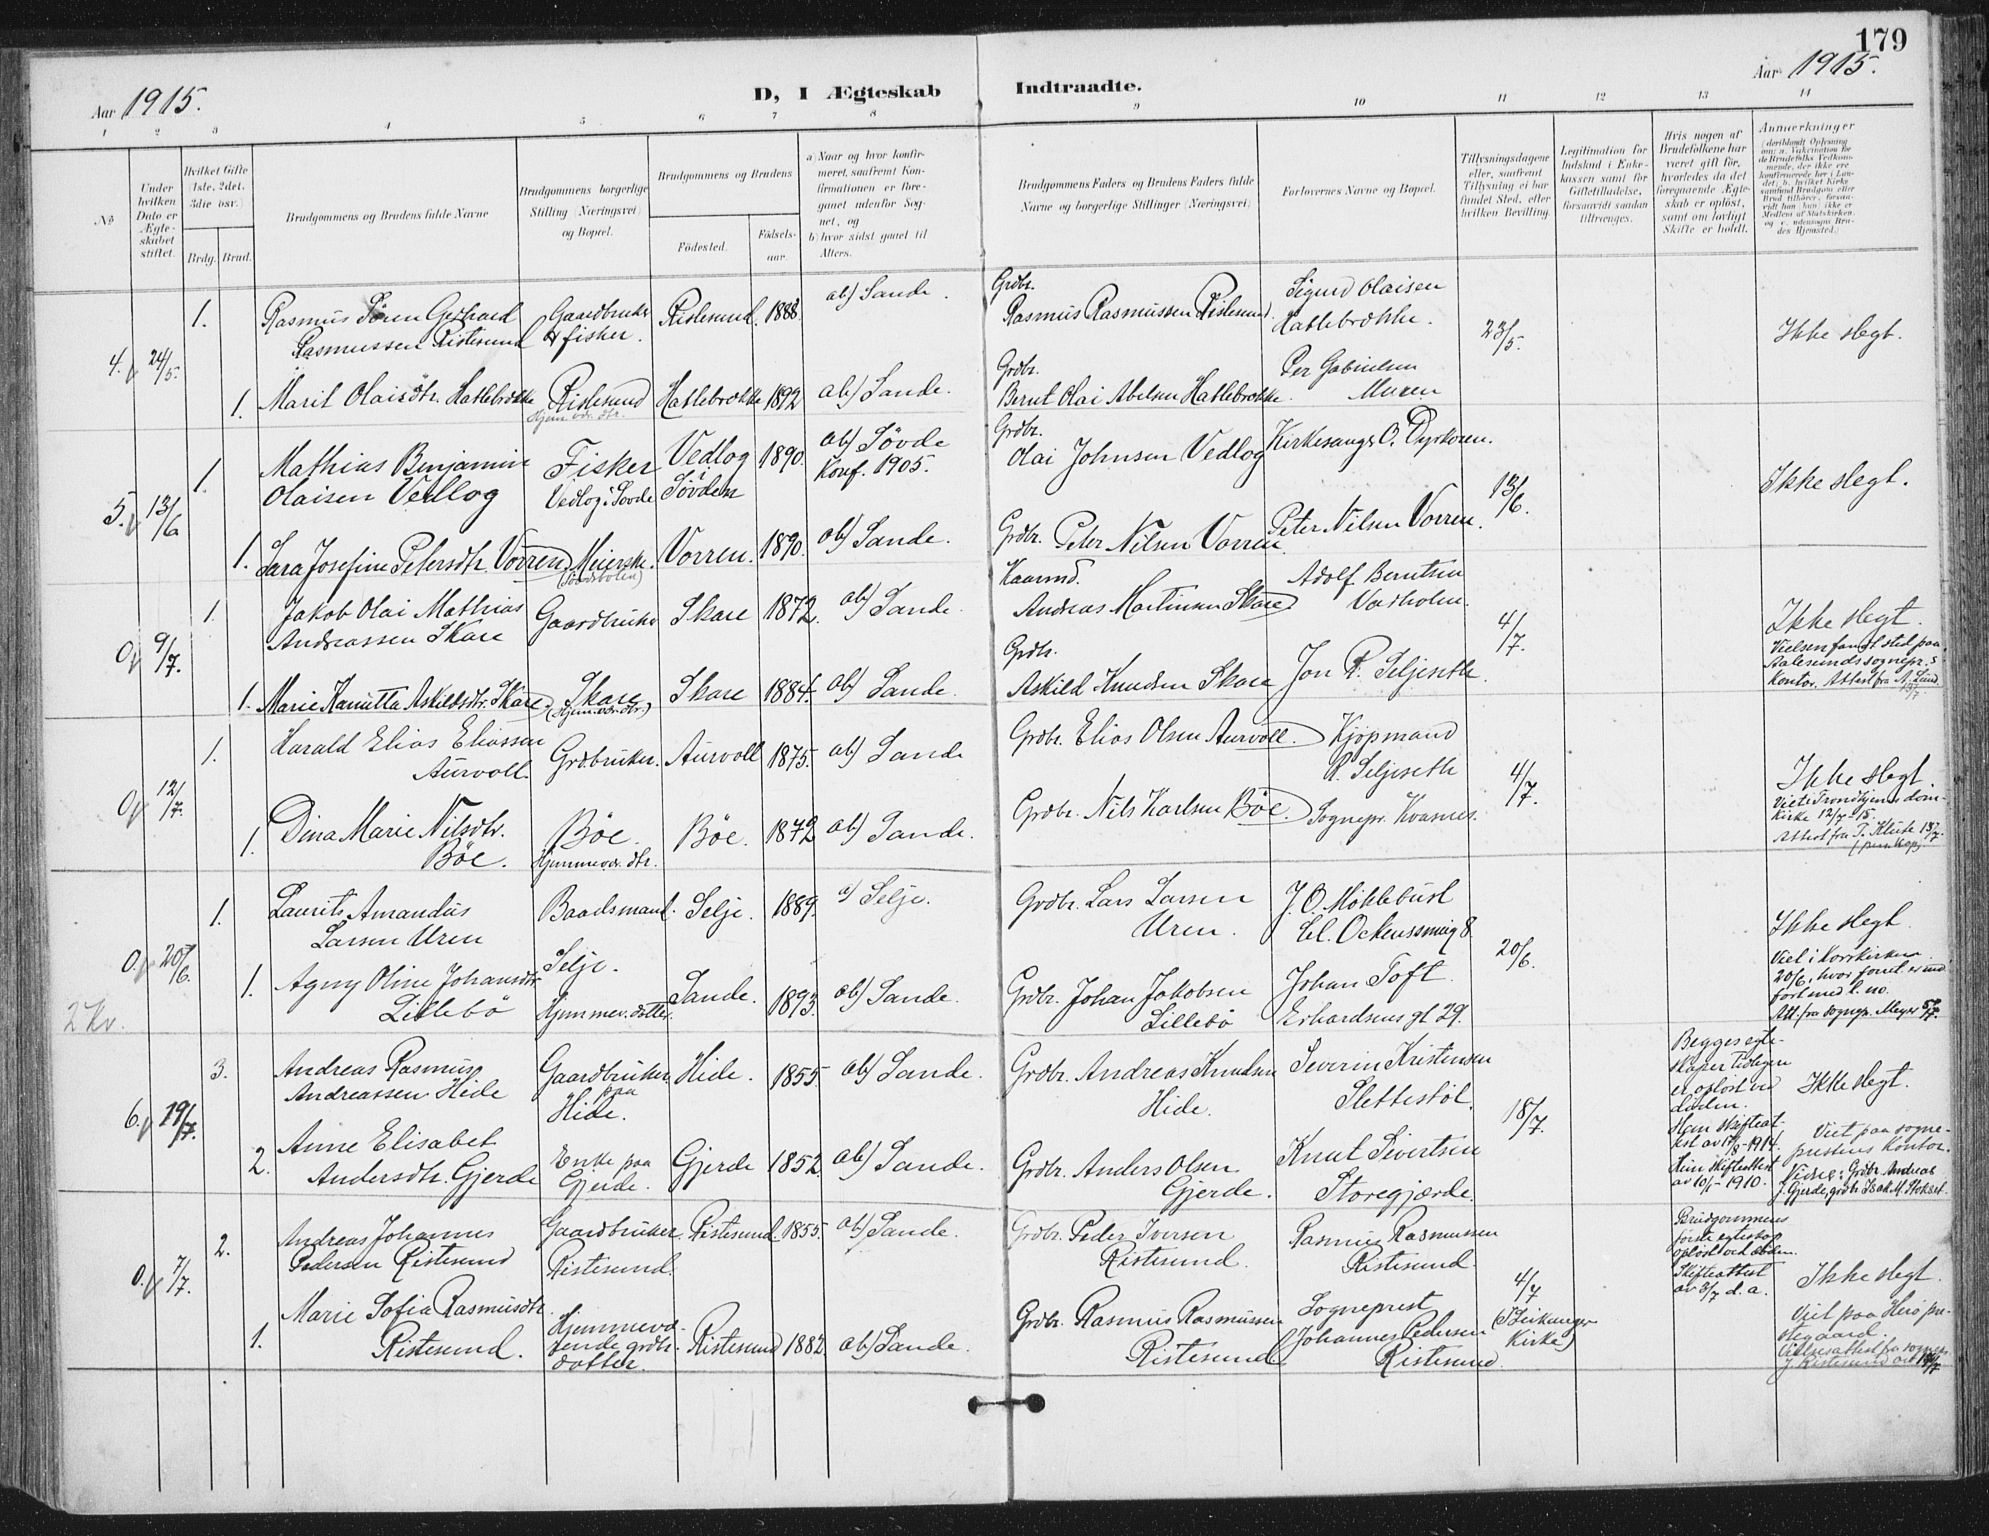 179
Aar 1915.
D, I Ægteskab Indtraadte.
Aar 1915.
1 2 3 4 5 6 7 8 9 10 11 12 13 14
No
Under hvilken Dato er Ægteskabet stiftet.
Hvilket Gifte (1ste, 2det, 3die osv.)
Brdg. Brud.
Brudgommens og Brudens fulde Navne
Brudgommens borgerlige Stilling (Næringsvei) og Bopæl.
Brudgommens og Brudens
Födested.
Födselsaar.
a) Naar og hvor konfirmeret, saafremt Konfirmationen er foregaaet udenfor Sognet, og
b) hvor sidst gaaet til Alters.
Brudgommens Faders og Brudens Faders fulde Navne og borgerlige Stillinger (Næringsvei)
Forlovernes Navne og Bopæl.
Tillysningsdagene eller, saafremt Tillysning ei har fundet Sted, efter hvilken Bevilling.
Legitimation for Indskud i Enkekassen samt for Giftetilladelse, forsaavidt saadan tiltrænges.
Hvis nogen af Brudefolkene har været gift för, hvorledes da det foregaaende Ægteskab er oplöst, samt om lovligt Skifte er holdt.
Anmærkninger
4. 24/5.
1. Rasmus Sören Gerhard Rasmussen Ristesund
Gaardbruker & fisker.
Ristesund. 1888.
ab) Sande.
Grdbr. Rasmus Rasmussen Ristesund.
Sigurd Olaisen Hatlebrække.
23/5.
Ikke slegt.
1. Marit Olaisdtr. Hatlebrække
Ristesund
Hjemv. dtr.
Hatlebrække 1892
ab) Sande.
Grdbr. Bernt Olai Abelsen Hatlebrække.
Per Gabrielsen Muren
5. 13/6
1. Mathias Benjamin Olaisen Vedlog
Fisker
Vedlog i Sövde
Vedlog i Sövden
1890.
ab) Sövde
Konf. 1905.
Grdbr. Olai Johnsen Vedlog
Kirkesanger O. Dyrkoren.
13/6.
Ikke slegt.
1. Sara Josefine Petersdtr. Vorren
Meierske.
Vorren. 1890.
ab) Sande.
Grdbr. Peter Nilsen Vorren
Peter Nilsen Vorren.
0 9/7.
1. Jakob Olai Mathias Andreassen Skare
Gaardbruker
Skare 1872.
ab) Sande.
Kaarmd. Andreas Martinsen Skare
Adolf Berntsen Vadholm.
4/7.
Ikke slegt.
Vielsen fandt sted paa Aalesunds sognepr.s kontor. Attest fra A. Lund
1. Marie Karnutta Askildsdtr. Skare
Skare
(Hjemv. dtr.)
Skare 1884.
ab) Sande.
Grdbr. Askild Knudsen Skare
Jon R. Seljeseth.
0 12/7.
1. Harald Elias Eliassen Aurvoll.
Grdbruker.
Aurvoll 1875.
ab) Sande
Grdbr. Elias Olsen Aurvoll.
Kjöpmand R. Seljeseth
4/7.
Ikke slegt.
Viet i Trondhjems domkirke 12/7-15.
1. Dina Marie Nilsdtr. Böe.
Böe.
Hjemmev. dtr.
Böe. 1872
ab) Sande.
Grdbr. Nils Karlsen Böe.
Sognepr. Kvasnes.
0. 20/6.
1. Laurits Amandus Larsen Uren
Baadsmand.
Selje.
Selje. 1889.
a) Selje.
Grdbr. Lars Larsen Uren.
20/6.
Ikke slegt.
Viet i Korskirken 20/6, hvor forret. er indfört med l. no.
Att. fra sognepr. Meyer 5/7.
2 kv.
1. Agny Oline Johansdtr. Lillebö
Hjemmev. datter.
Sande. 1893.
ab) Sande.
Grdbr. Johan Jakobsen Lillebö
Johan Toft
6. 19/7.
3. Andreas Rasmus Andreassen Hide
Gaardbruker paa Hide.
Hide. 1855.
ab) Sande.
Grdbr. Andreas Knudsen Hide.
Severin Kristensen Slettestöl.
18/7.
Begges egteskaper tidligere er oplöst ved döden.
Ikke slegt.
Viet paa sogneprestens kontor.
2. Anne Elisabet Andersdtr. Gjerde
Enke paa Gjerde.
Gjerde 1852
ab) Sande.
Grdbr. Anders Olsen Gjerde.
Knut Sivertsen Storegjærde.
0. 7/7.
2. Andreas Johannes Pedersen Ristesund
Gaardbruker. Ristesund.
Ristesund. 1855.
ab) Sande.
Grdbr. Peder Iversen Ristesund.
Rasmus Rasmussen Ristesund.
4/7
Brudgommens förste egteskap oplöst ved döden.
Skifteattest av 3/7 d.a.
Ikke slegt.
Viet paa Herö prestegaard.
1. Marie Sofia Rasmusdtr. Ristesund.
Hjemmeværende grdbr. datter.
Ristesund 1882
ab) Sande.
Grdbr. Rasmus Rasmussen Ristesund
Sogneprest Johannes Pedersen Ristesund.